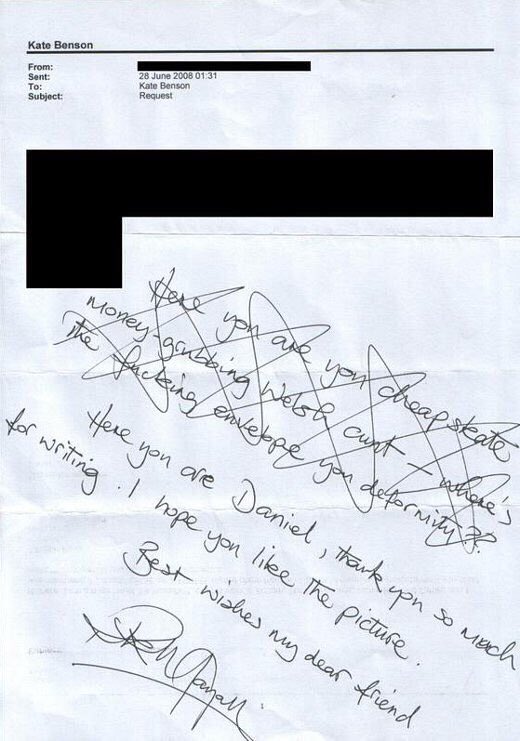 Kate Benson
From:
Sent: 28 June 2008 01:31
To: Kate Benson
Subject: Request
Here you are you cheapskate
money-grubbing Welsh cunt – where's
the fucking envelope you deformity??
Here you are Daniel, thank you so much
for writing. I hope you like the picture.
Best wishes my dear friend
Rik Mayall